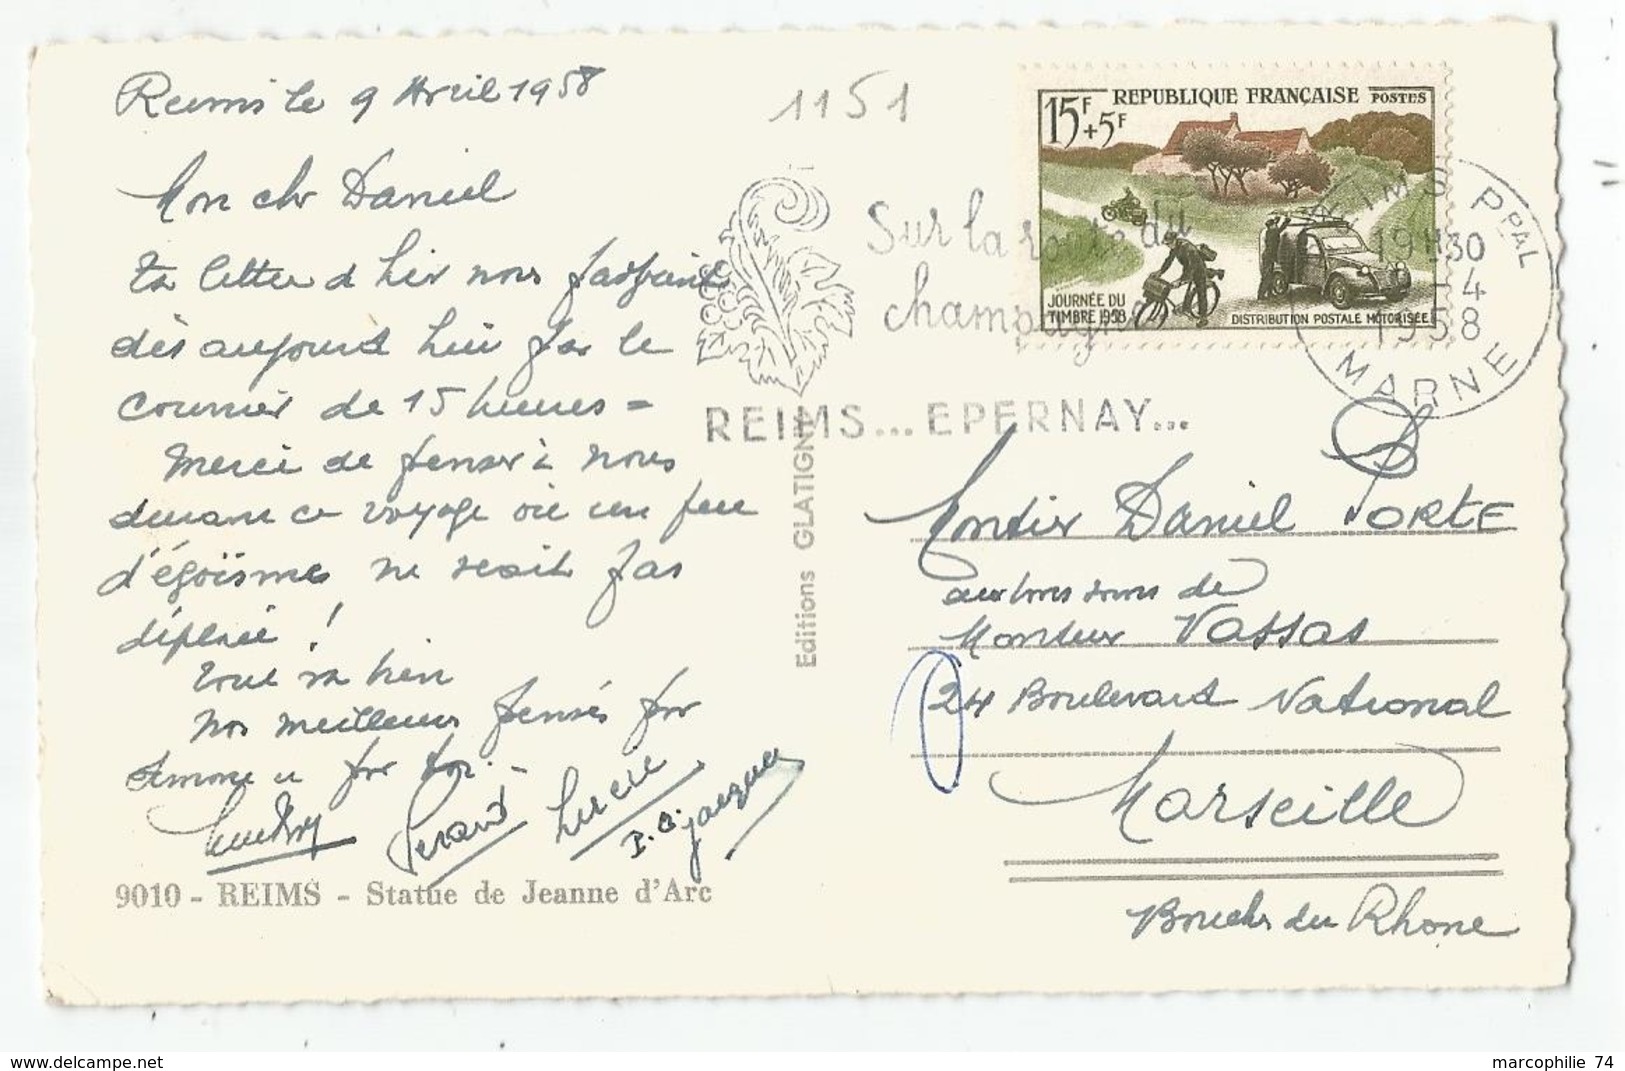 Reims le 9 Avril 1958
1151
Mon cher Daniel
Ta lettre d'hier nous parvient
dès aujourd'hui par le
courrier de 15 heures =
Merci de penser à nous
durant ce voyage où un peu
d'égoïsme ne serait pas
déplacé !
Tout va bien
Nos meilleures pensées pour
Simone et pour toi. -
Lucie
P.O. Jacques
9010 - REIMS - Statue de Jeanne d'Arc
Editions GLATIGNY
Sur la route du
champagne
REIMS... EPERNAY...
15F +5F
REPUBLIQUE FRANÇAISE POSTES
JOURNÉE DU
TIMBRE 1958
DISTRIBUTION POSTALE MOTORISÉE
REIMS PPAL
19H30
-4
1958
MARNE
Monsieur Daniel PORTE
aux bons soins de
Monsieur Vassas
24 Boulevard National
Marseille
Bouches du Rhone
marcophilie 74